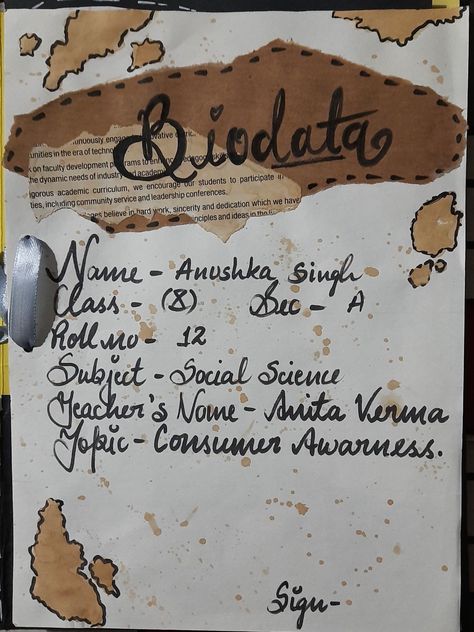 Biodata
nuously engage
unities in the era of techno
k on faculty development programs to
he dynamic needs of industry and academ
igorous academic curriculum, we encourage our students to participate in
ties, including community service and leadership conferences.
believe in hard work, sincerity and dedication which we have
inciples and ideas in the
Name - Anushka Singh
Class - (8) Sec - A
Roll no - 12
Subject - Social Science
Teacher's Name - Anita Verma
Topic - Consumer Awarness.
Sign-